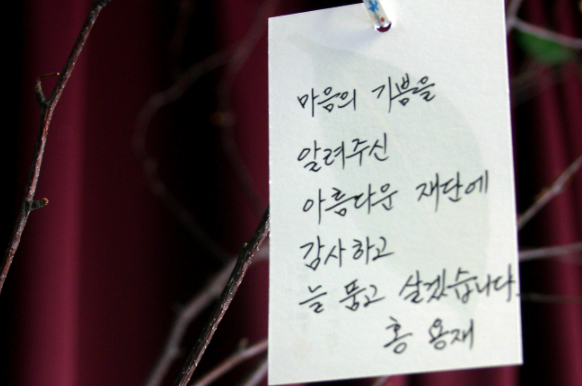 마음의 기쁨을
알려주신
아름다운 재단에
감사하고
늘 품고 살겠습니다.
홍 용재